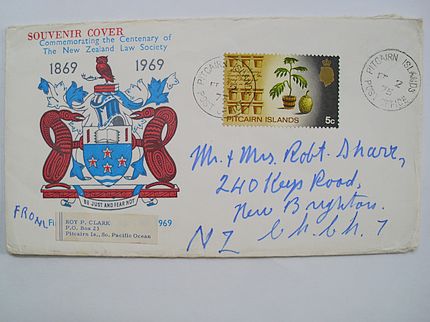 SOUVENIR COVER
Commemorating the Centenary of
The New Zealand Law Society
1869 1969
BE JUST AND FEAR NOT
FROM Fi 1969
ROY P. CLARK
P.O. Box 23
Pitcairn Is., So. Pacific Ocean
PITCAIRN ISLANDS
5c
PITCAIRN ISLANDS
POST OFFICE
Mr. & Mrs. Robt.
240 Keys Road,
New Brighton.
Ch. Ch. 7
NZ